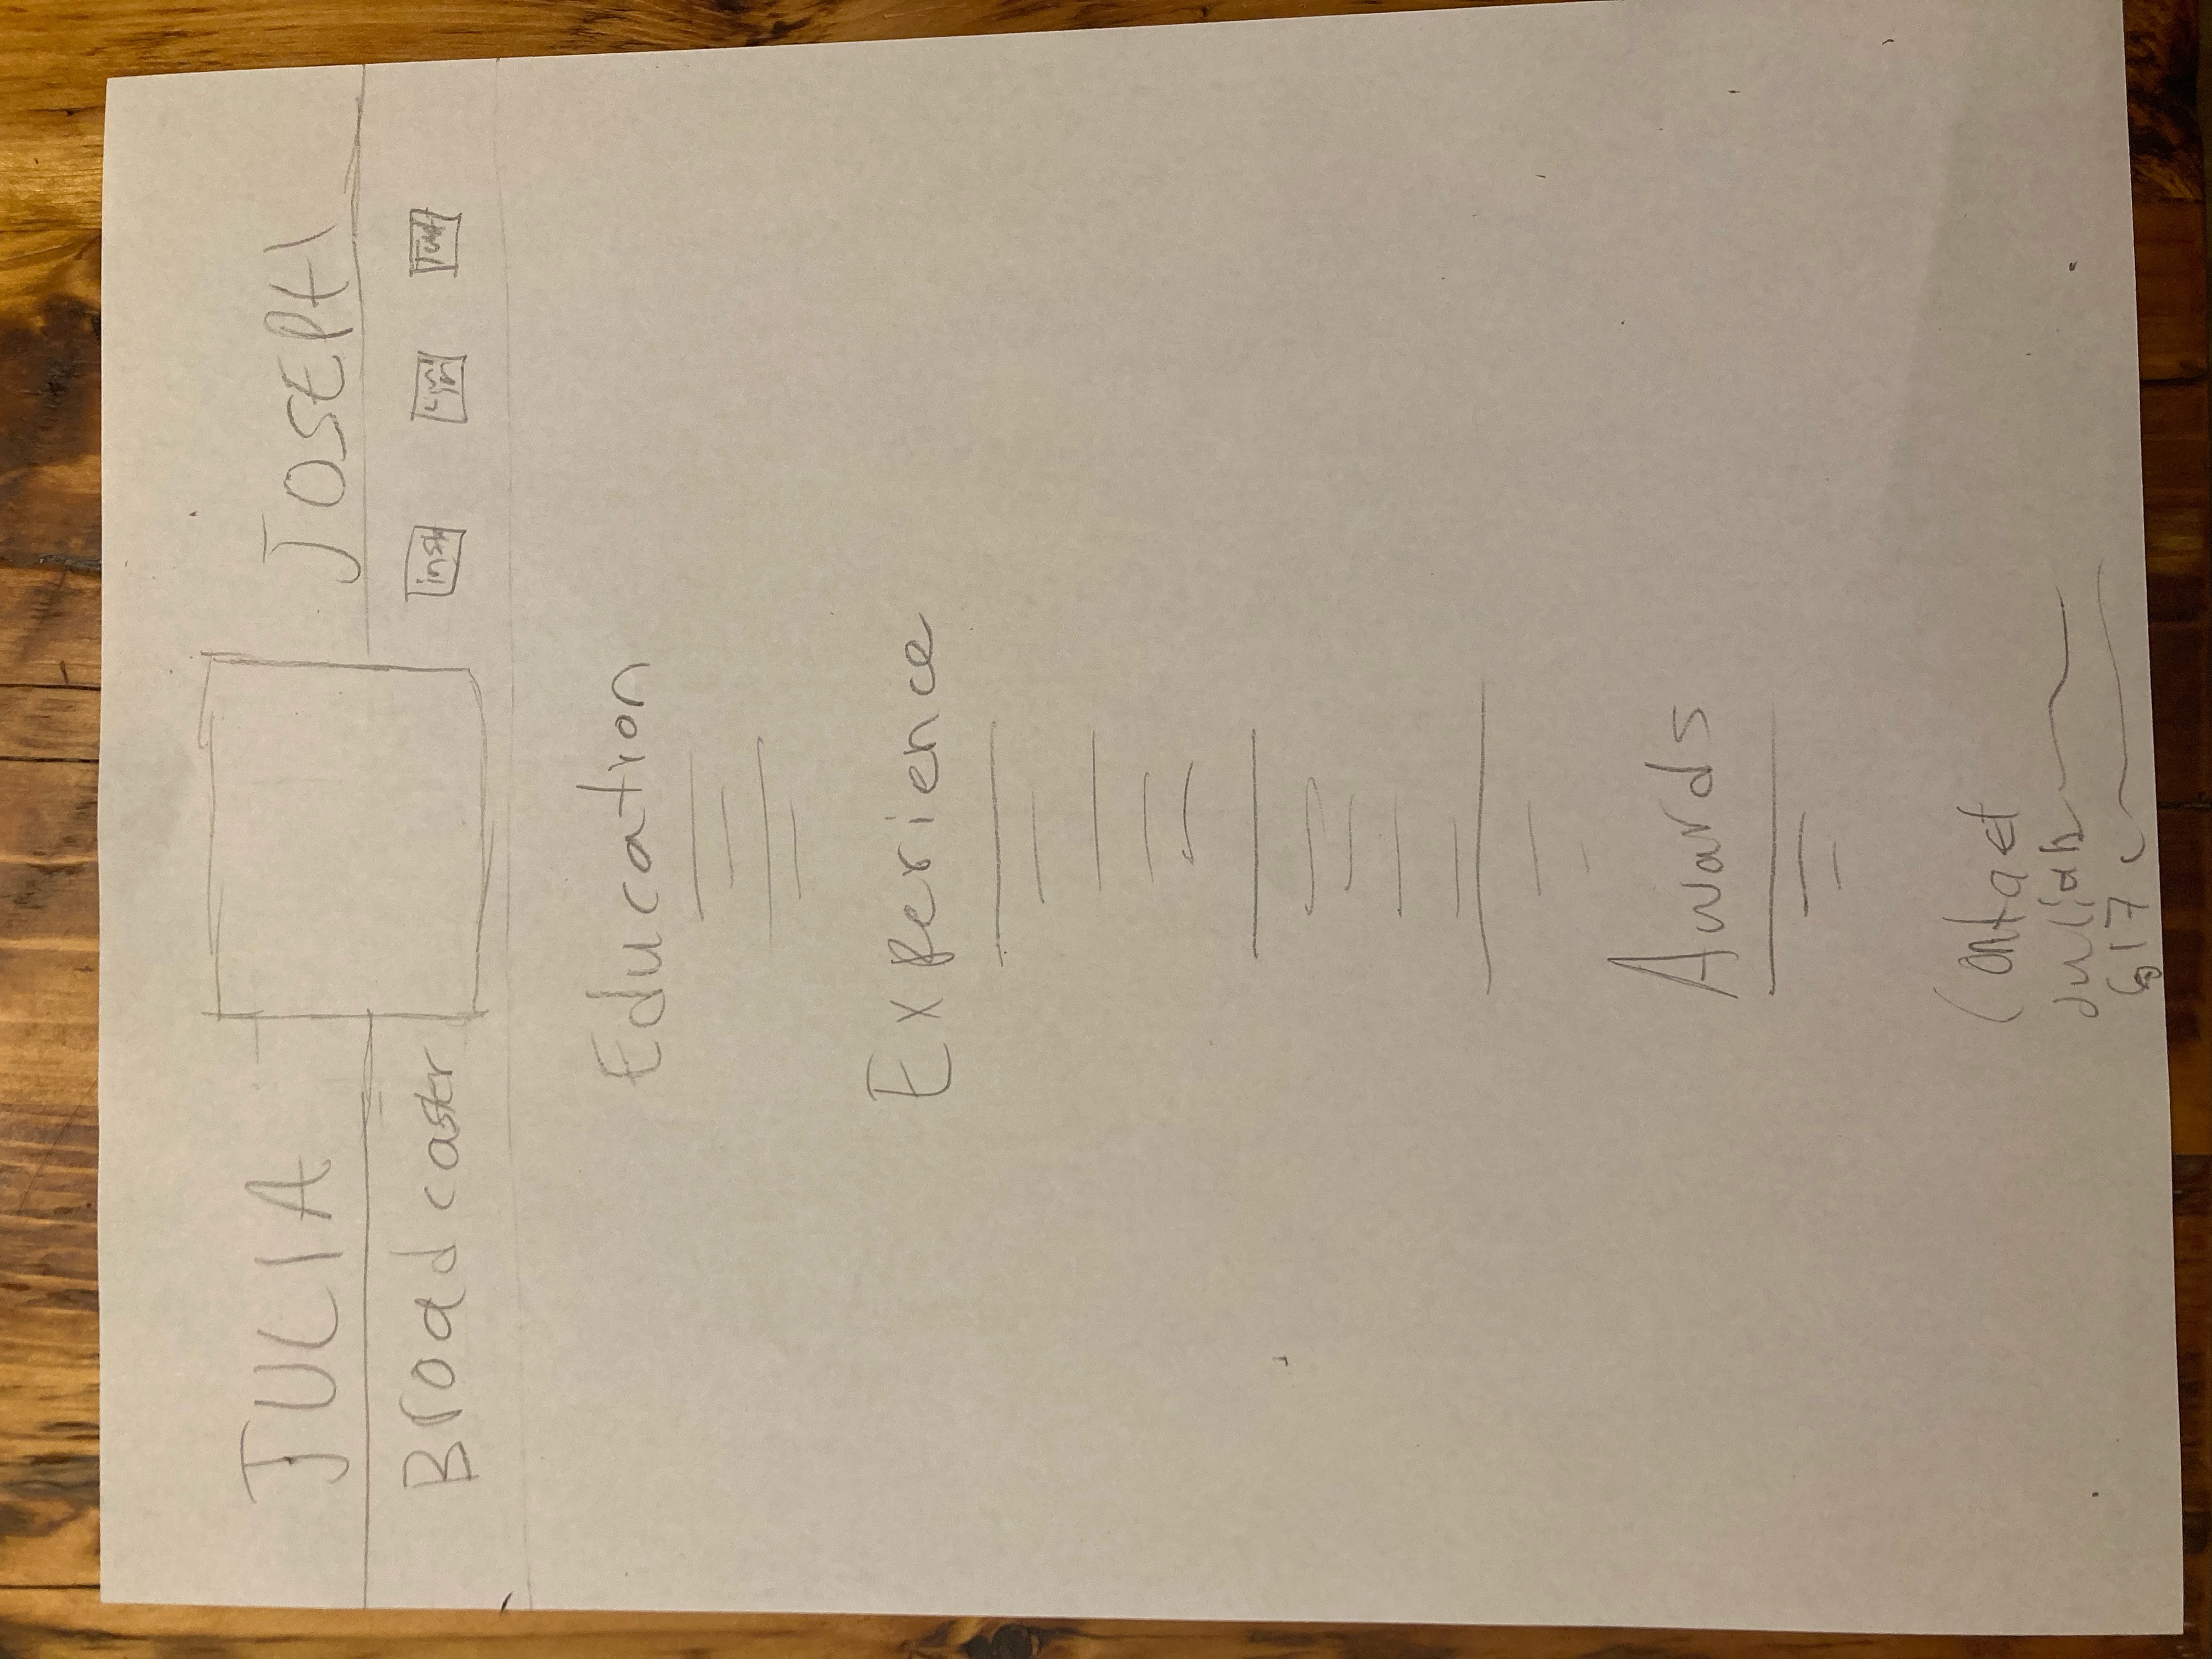 JULIA JOSEPH
Broadcaster
Education
Experience
Awards
Contact
617